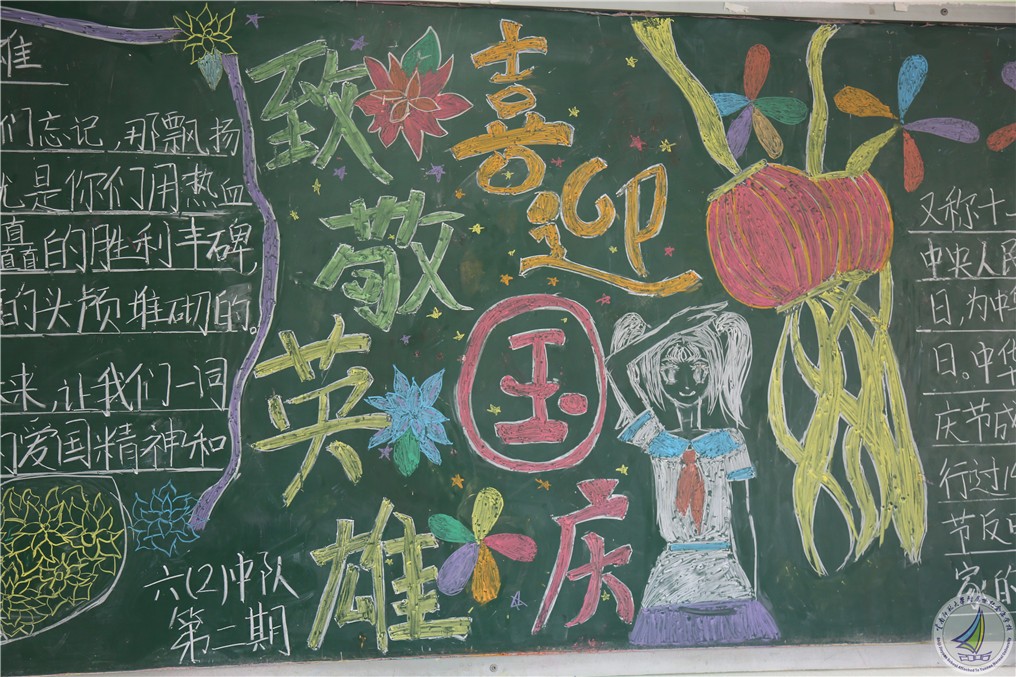 雄
们忘记,那飘扬
是你们用热血
矗的胜利丰碑,
的头颅堆砌的。
来,让我们一同
爱国精神和
致敬英雄
喜迎国庆
六(2)中队
第二期
又称十一
中央人民
日,为中华
日。中华
庆节成
行过14
节反
家的